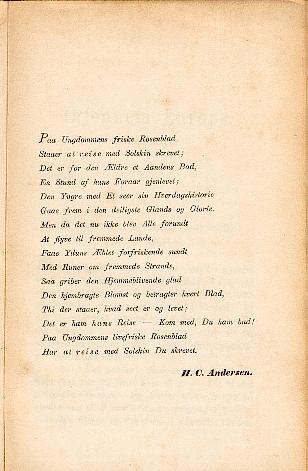 Paa Ungdommens friske Rosenblad
Staaer at reise med Solskin skrevet;
Det er for den Ældre et Aandens Bad,
En Stund af hans Foraar gjenlevet;
Den Yngre med Et seer sin Hverdagshistorie
Gaae frem i den deiligste Glands og Glorie.
Men da det nu ikke blev Alle forundt
At flyve til fremmede Lande,
Faae Yduns Æblet forfriskende sundt
Med Runer om fremmede Strande,
Saa griber den Hjemmeblivende glad
Den hjembragte Blomst og betragter hvert Blad,
Thi der staaer, hvad seet er og levet;
Det er ham hans Reise — Kom med, Du ham bad!
Paa Ungdommens livsfriske Rosenblad
Har at reise med Solskin Du skrevet.
H. C. Andersen.